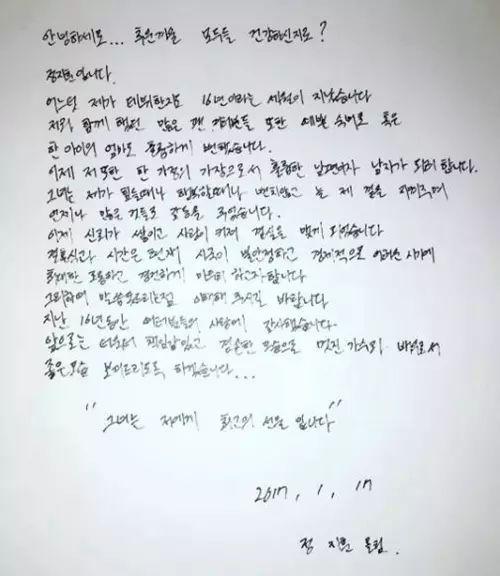 안녕하세요... 추운겨울 모두들 건강하신지요?
정지훈입니다.
어느덧 제가 데뷔한지도 16년이라는 세월이 지났습니다
저와 함께 했던 많은 팬 여러분들 또한 예쁜 숙녀로 혹은
한 아이의 엄마로 훌륭하게 변했습니다.
이제 저 또한 한 가정의 가장으로서 훌륭한 남편이자 남자가 되려 합니다.
그녀는 제가 힘들때나 행복할때나 변치않고 늘 제 곁을 지켜주며
언제나 많은 것들로 감동을 주었습니다.
이제 신뢰가 쌓이고 사랑이 커져 결실을 맺게 되었습니다
결혼식과 시간은 현재 시국이 불안정하고 경제적으로 어려운 시기에
최대한 조용하고 경건하게 마무리 하고자합니다
그리하여 말씀못드리는점 이해해 주시길 바랍니다
지난 16년동안 여러분들의 사랑에 감사했습니다.
앞으로는 더욱더 책임감있고 겸손한 모습으로 멋진 가수와 배우로서
좋은모습 보여드리도록 하겠습니다...
"그녀는 저에게 최고의 선물 입니다"
2017. 1. 17
정 지훈 올림.